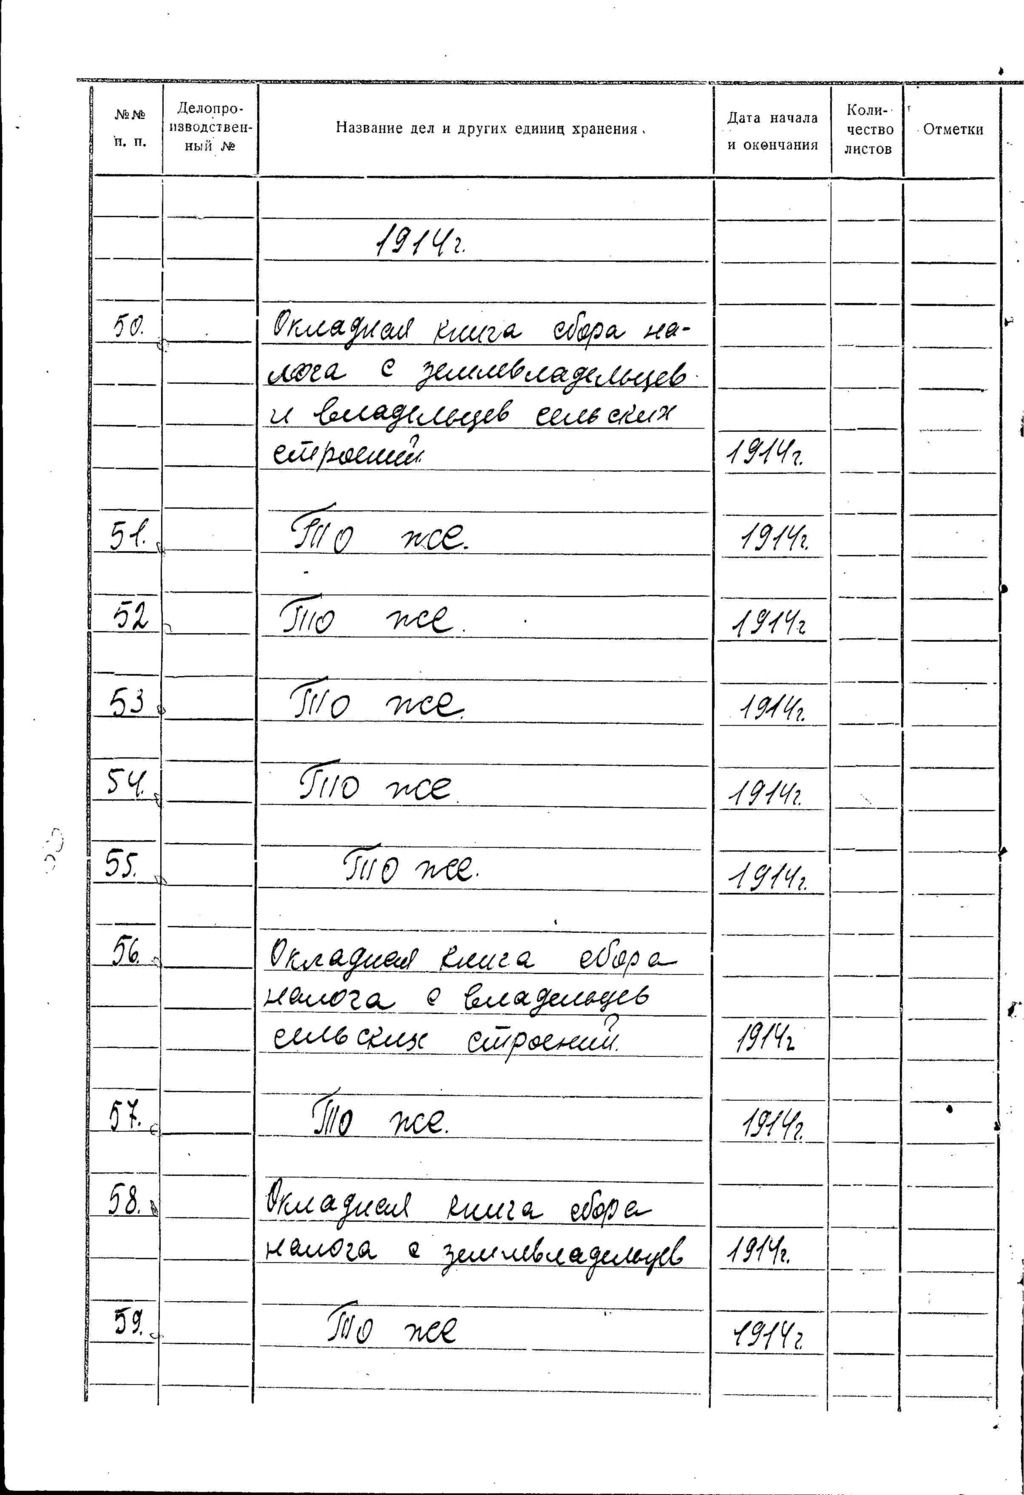 №№ п. п. Делопро-изводствен-ный № Название дел и других единиц хранения. Дата начала и окончания Коли-чество листов Отметки
1914г.
50. Окладная книга сбора на-
лога с землевладельцев
и владельцев сельских
строений 1914г.
51. То же. 1914г.
52 То же. 1914г
53 То же. 1914г.
54. То же. 1914г.
55. То же. 1914г.
56. Окладная книга сбора
налога с владельцев
сельских строений. 1914г
57. То же. 1914г.
58. Окладная книга сбора
налога с землевладельцев 1914г.
59. То же 1914г.